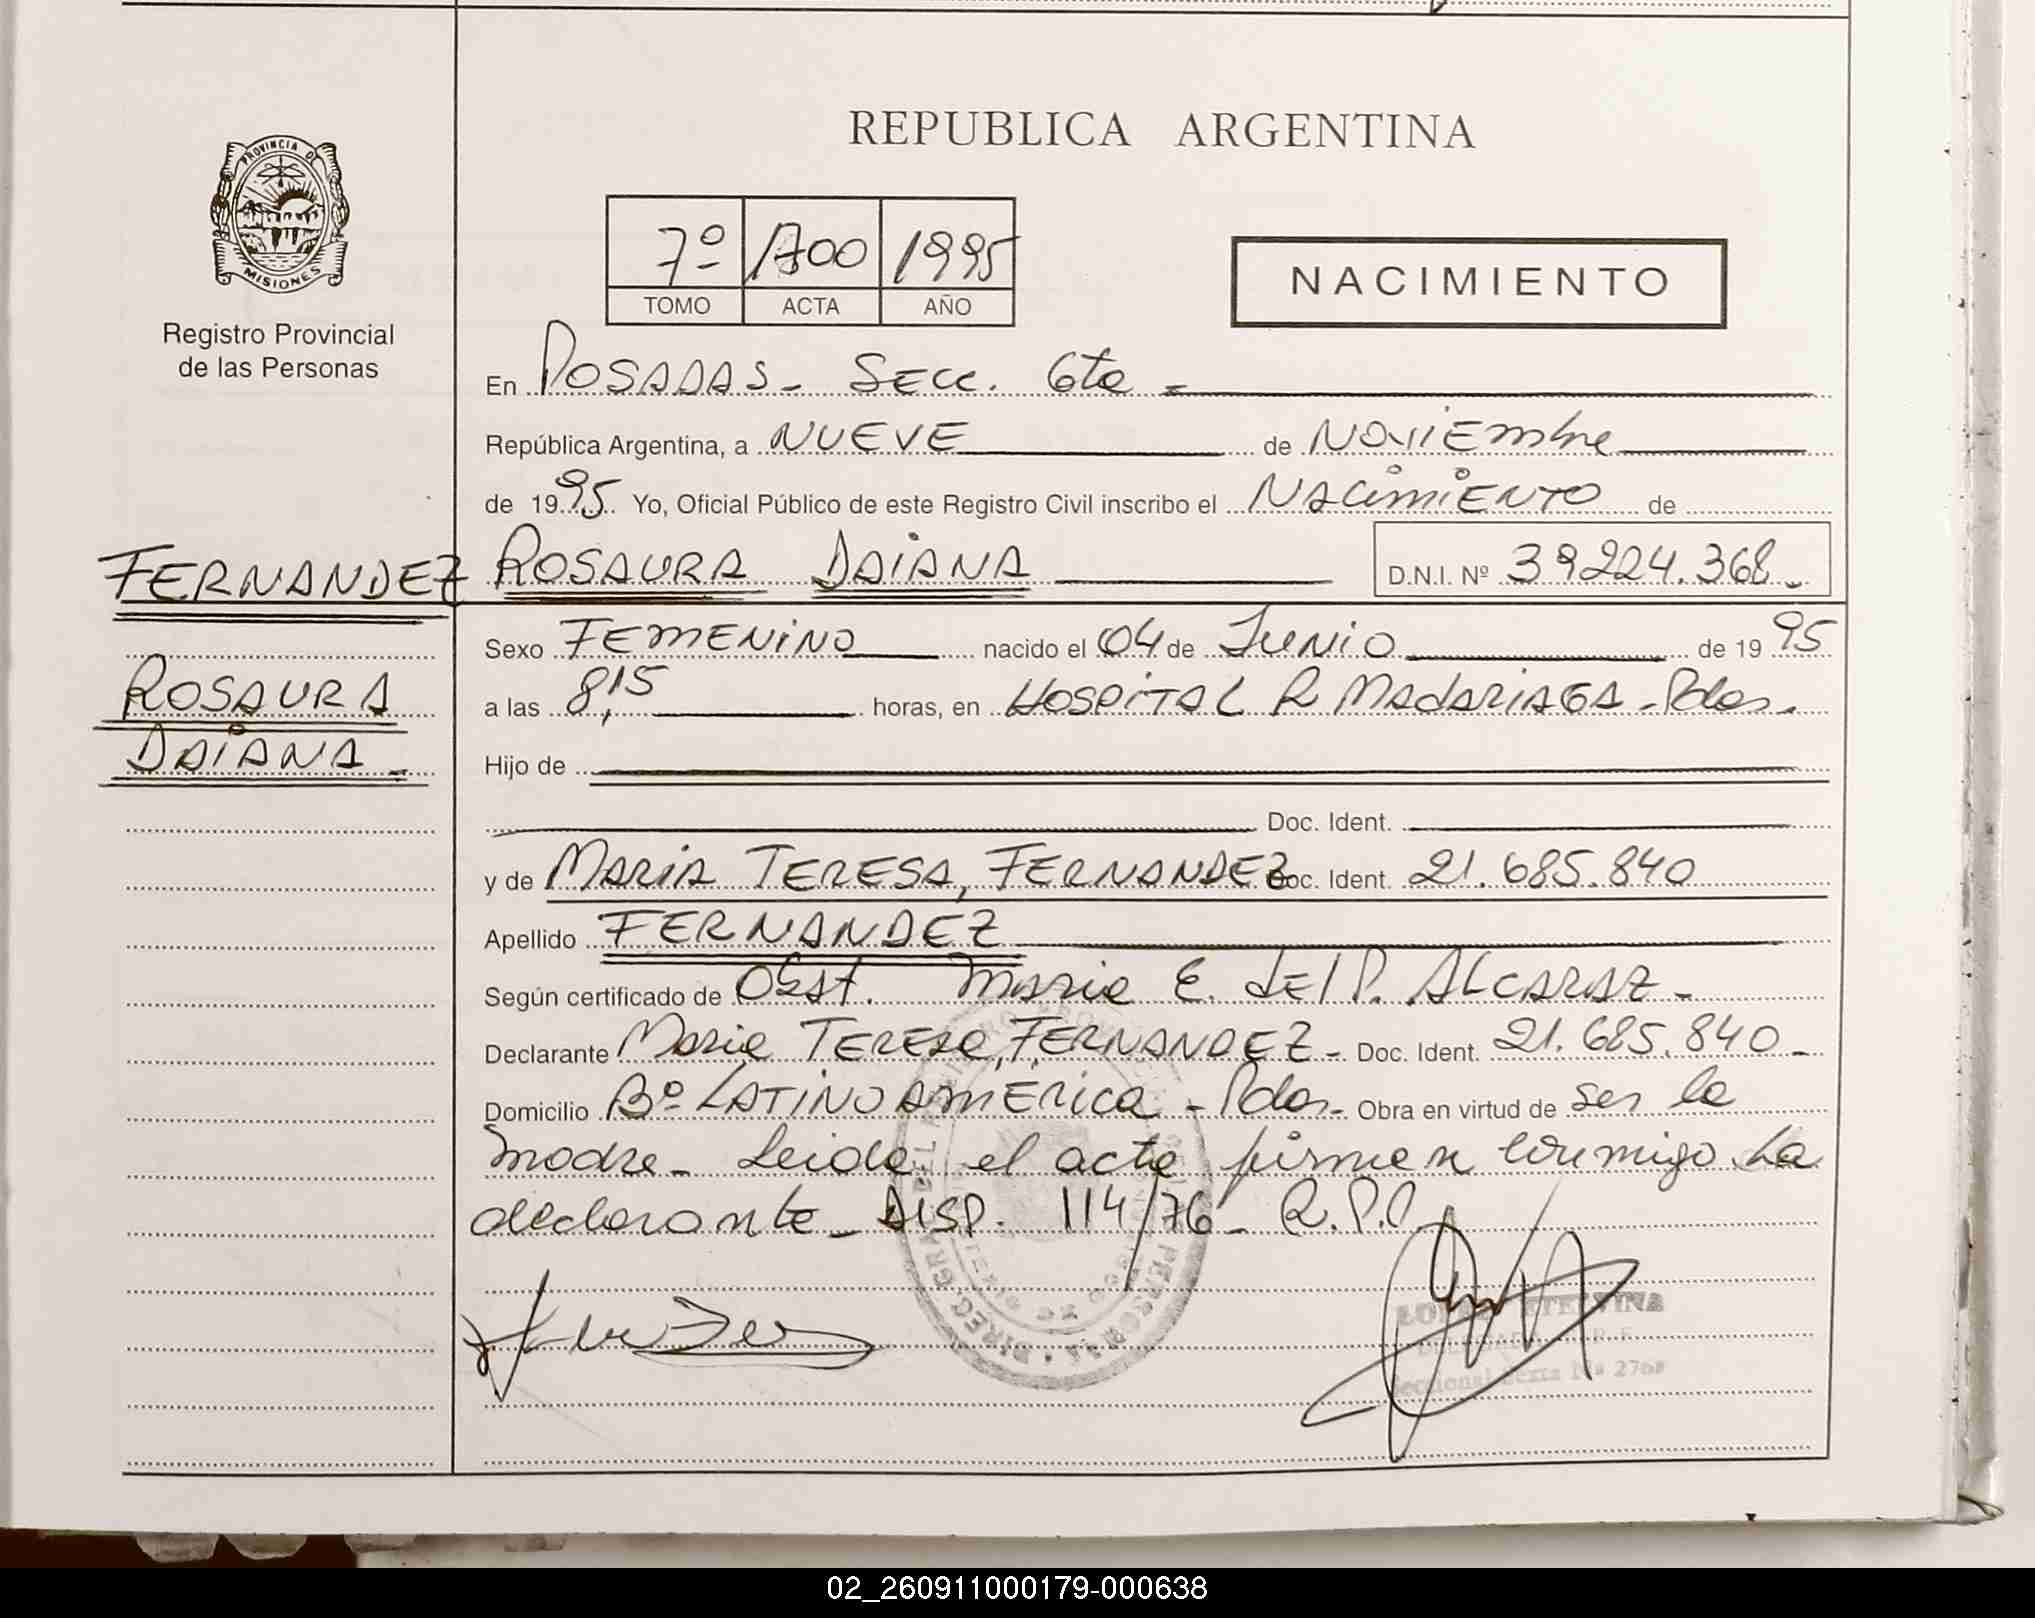 REPUBLICA ARGENTINA
PROVINCIA DE
MISIONES
Registro Provincial
de las Personas
7º 1700 1995
TOMO ACTA AÑO
NACIMIENTO
En POSADAS - SECC. 6ta -
República Argentina, a NUEVE de NOVIEmbre
de 1995 Yo, Oficial Público de este Registro Civil inscribo el NACimiENTO de
FERNANDEZ ROSAURA DAIANA D.N.I. Nº 39224.368-
Sexo FEMENINO nacido el 04 de JUNIO de 1995
ROSAURA
a las 8,15 horas, en HOSPITAL R MADARIAGA - Pdas.
DAIANA -
Hijo de
Doc. Ident.
y de MARIA TERESA, FERNANDEZ Doc. Ident. 21.685.840
Apellido FERNANDEZ
Según certificado de Obst. Maria E. DEL P. ALCARAZ -
Declarante Maria TERESA, FERNANDEZ - Doc. Ident. 21.685.840 -
Domicilio Bº LATINOAMERICA - Pdas - Obra en virtud de ser la
madre - Leida el acta firman conmigo la
declarante - DISP. 114/76 - R.P.P.
ETELVINA
Seccional Sexta Nº 2768
02_260911000179-000638